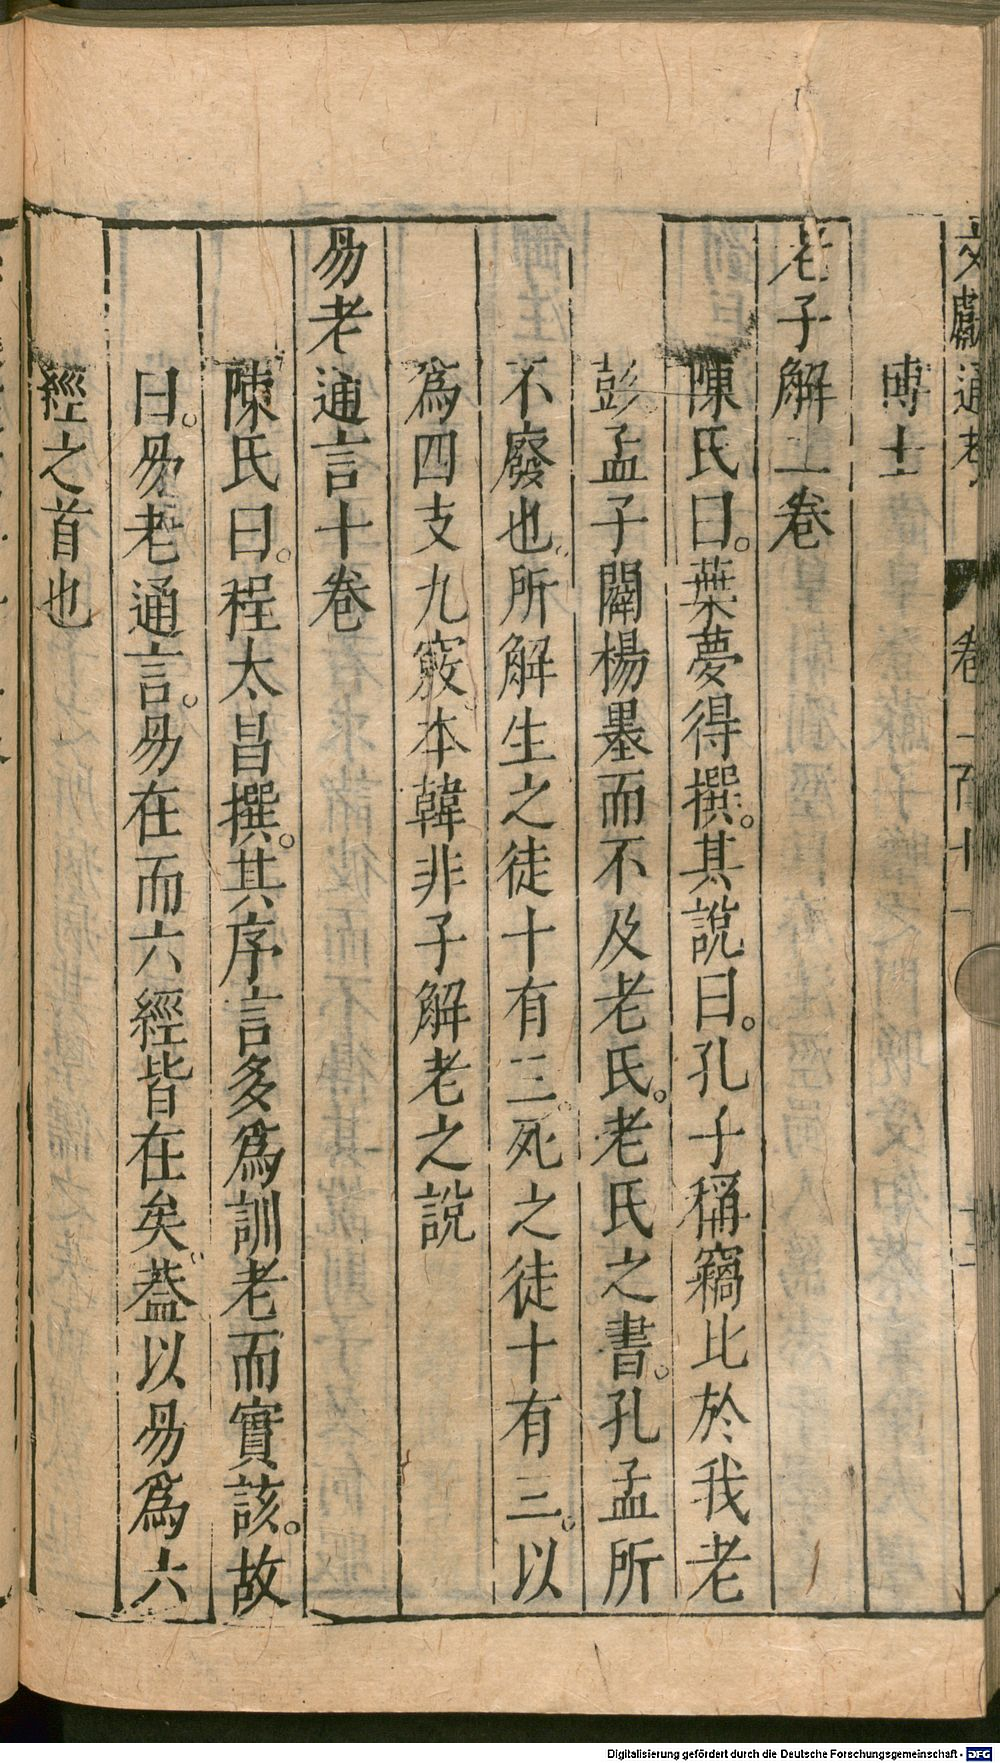 文獻通考 卷二百十一
博士
老子解二卷
陳氏曰。葉夢得撰。其說曰。孔子稱竊比於我老
彭孟子闢楊墨而不及老氏。老氏之書。孔孟所
不廢也。所解生之徒十有三。死之徒十有三。以
爲四支九竅本韓非子解老之說
易老通言十卷
陳氏曰。程太昌撰。其序言多爲訓老而實該。故
曰。易老通言。易在而六經皆在矣。蓋以易爲六
經之首也
Digitalisierung gefördert durch die Deutsche Forschungsgemeinschaft - DFG